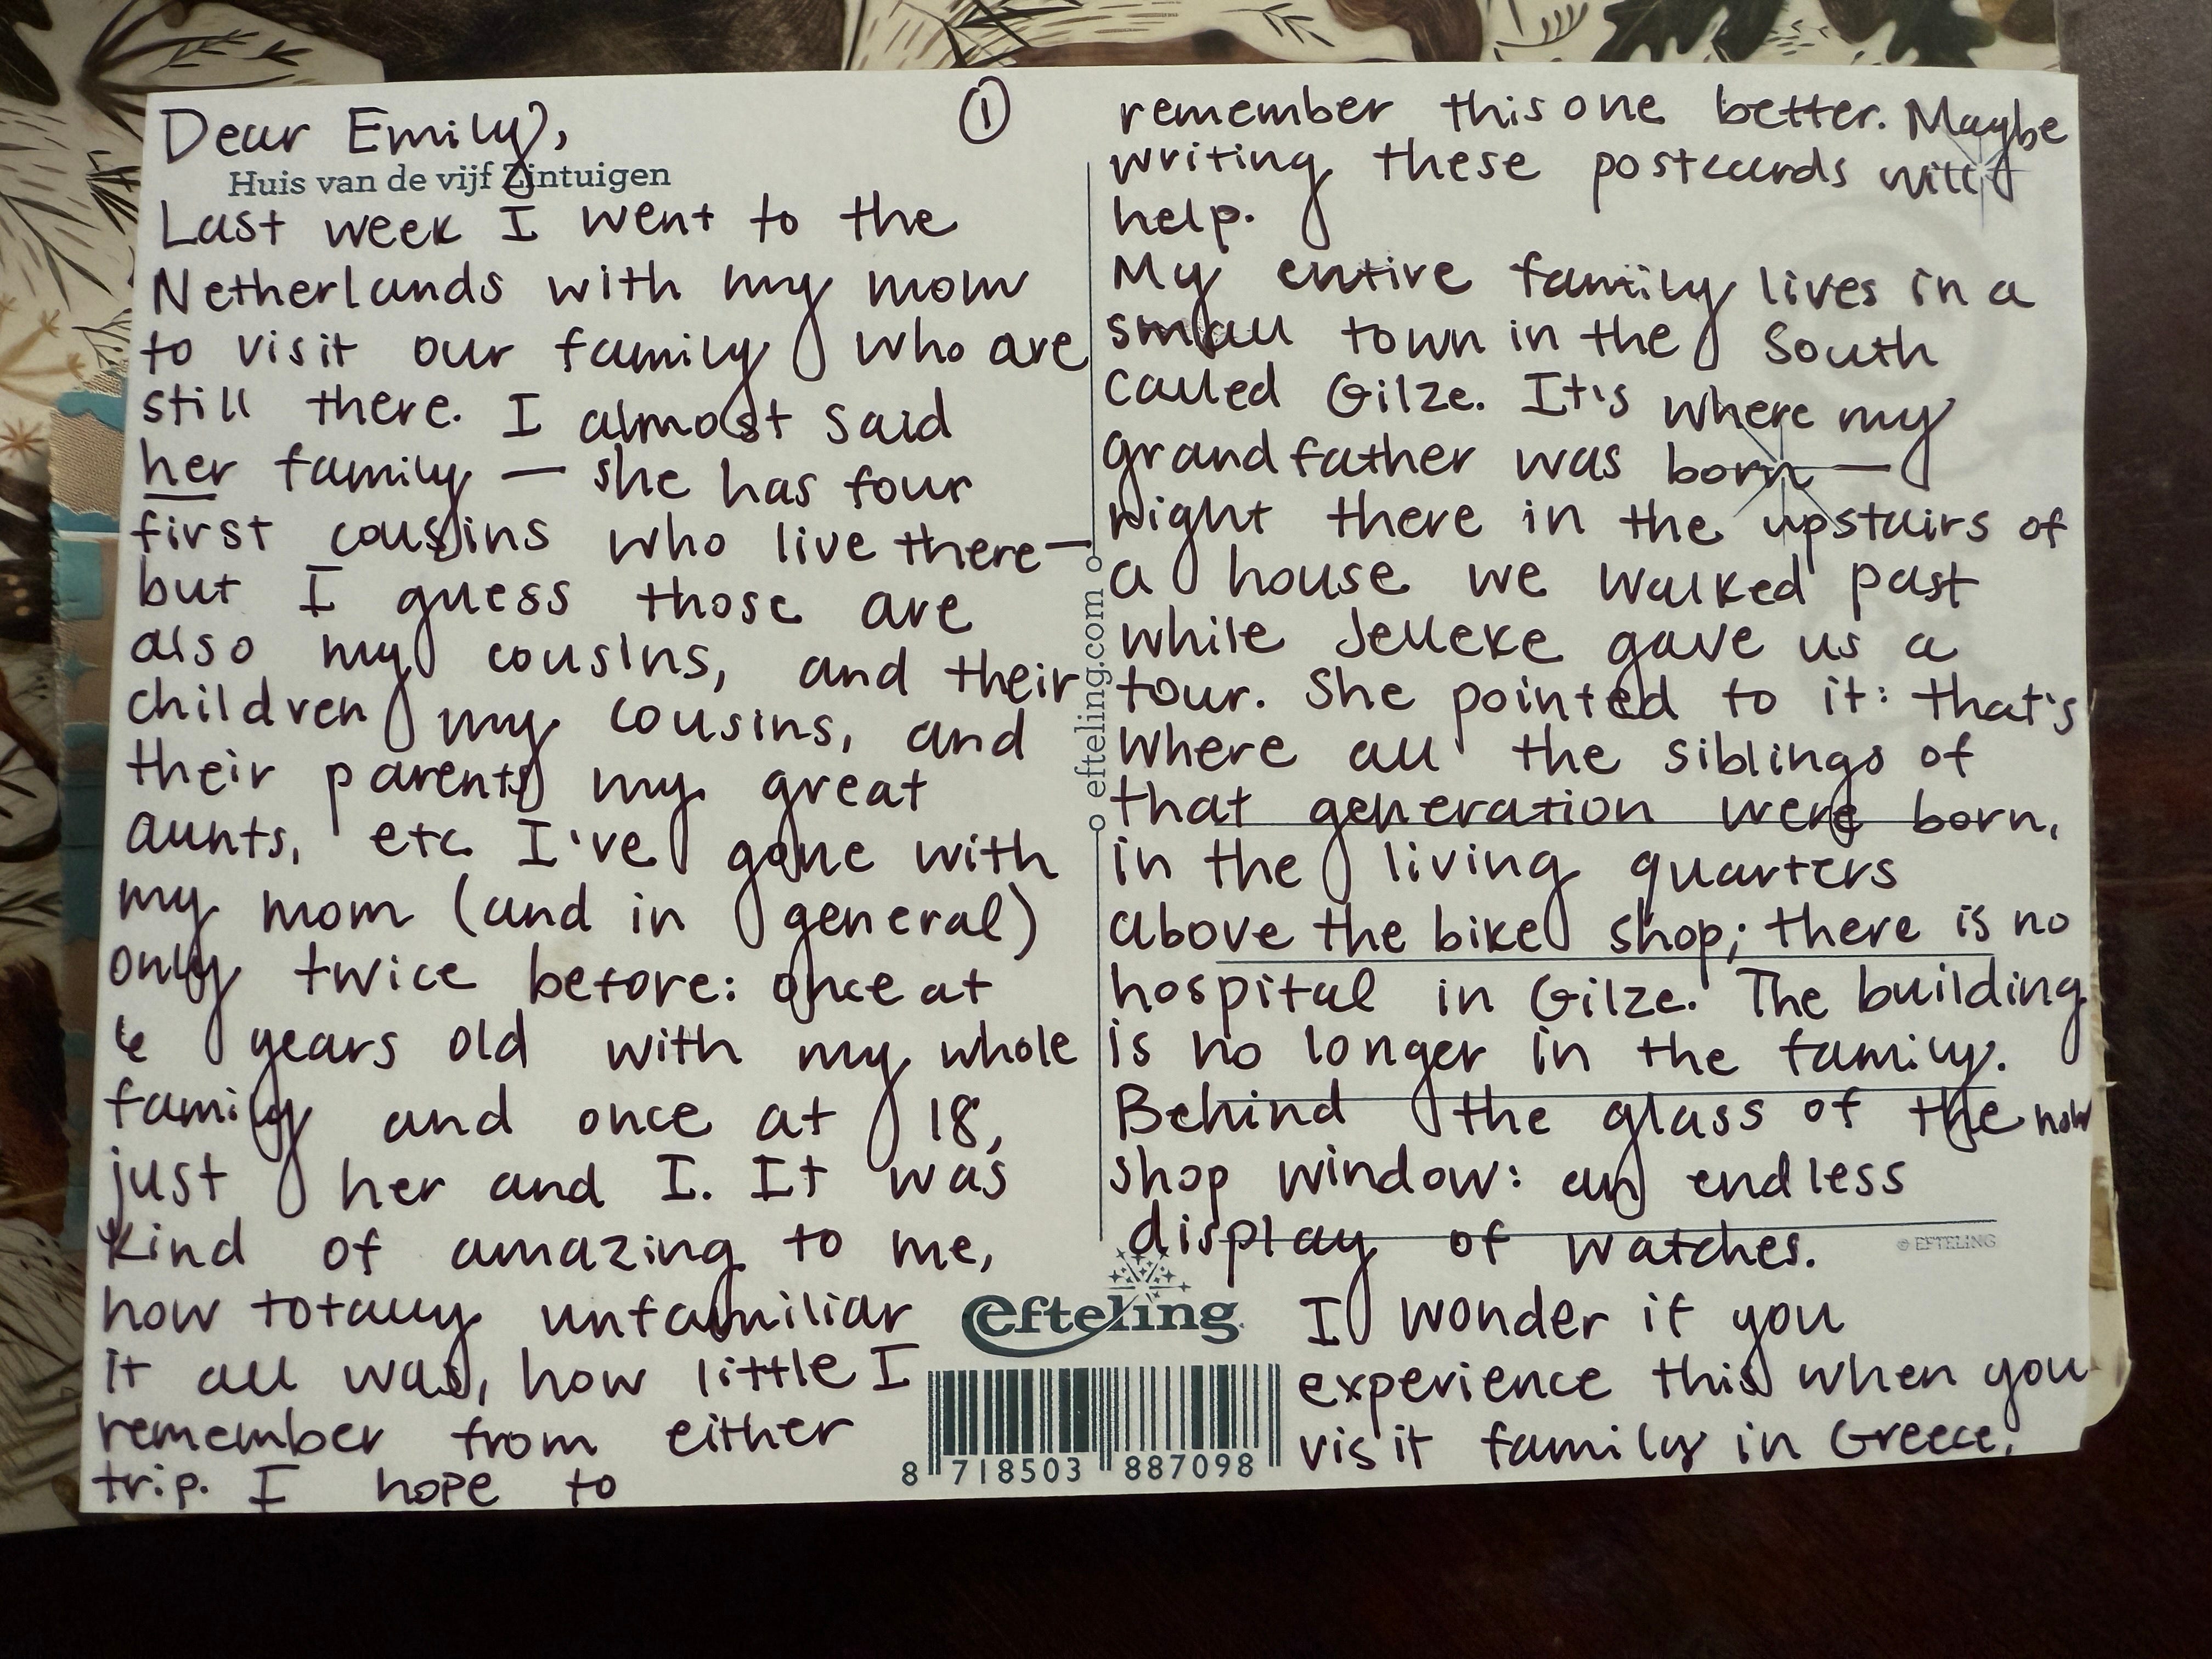 Dear Emily,
①
Huis van de vijf Zintuigen
Last week I went to the
Netherlands with my mom
to visit our family who are
still there. I almost said
her family — she has four
first cousins who live there—
but I guess those are
also my cousins, and their
children my cousins, and
their parents my great
aunts, etc. I've gone with
my mom (and in general)
only twice before: once at
6 years old with my whole
family and once at 18,
just her and I. It was
kind of amazing to me,
how totally unfamiliar
it all was, how little I
remember from either
trip. I hope to
remember this one better. Maybe
writing these postcards will
help.
My entire family lives in a
small town in the South
called Gilze. It's where my
grandfather was born —
right there in the upstairs of
a house we walked past
while Jelleke gave us a
tour. She pointed to it: that's
where all the siblings of
that generation were born,
in the living quarters
above the bike shop; there is no
hospital in Gilze. The building
is no longer in the family.
Behind the glass of the now
shop window: an endless
display of watches.
I wonder if you
experience this when you
visit family in Greece,
efteling.com
© EFTELING
efteling
8 718503 887098